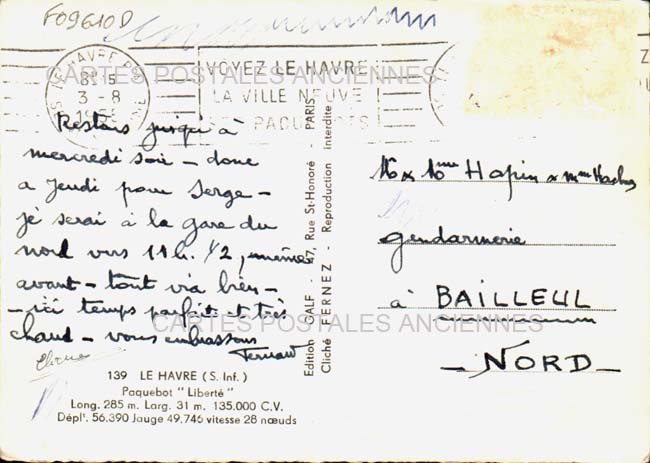 F09610D
LE HAVRE
3 - 8
VOYEZ LE HAVRE
LA VILLE NEUVE
SES PAQUEBOTS
CARTES POSTALES ANCIENNES
Restons jusqu'à
mercredi soir - donc
a Jeudi pour Serge -
je serai à la gare du
nord vers 11h. 1/2, même
avant - tout va bien -
- ici temps parfait et très
chaud - vous embrassons
Fernand
CARTES POSTALES ANCIENNES
139 LE HAVRE (S. Inf.)
Paquebot "Liberté"
Long. 285 m. Larg. 31 m. 135.000 C.V.
Dépl. 56.390 Jauge 49.746 vitesse 28 nœuds
Edition GALF - 247, Rue St-Honoré - PARIS
Cliché FERNEZ - Reproduction interdite
M & Mme Hapin & Mme
gendarmerie
à BAILLEUL
- NORD -